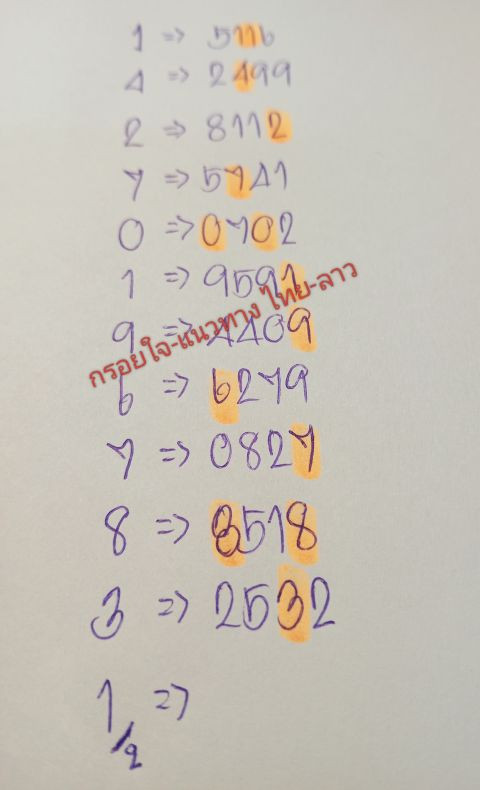 1 => 5116
4 => 2499
2 => 8112
7 => 5741
0 => 0702
1 => 9591
9 => 4409
กรอยใจ-แนวทาง ไทย-ลาว
6 => 6279
7 => 0827
8 => 8518
3 => 2532
1/2 =>